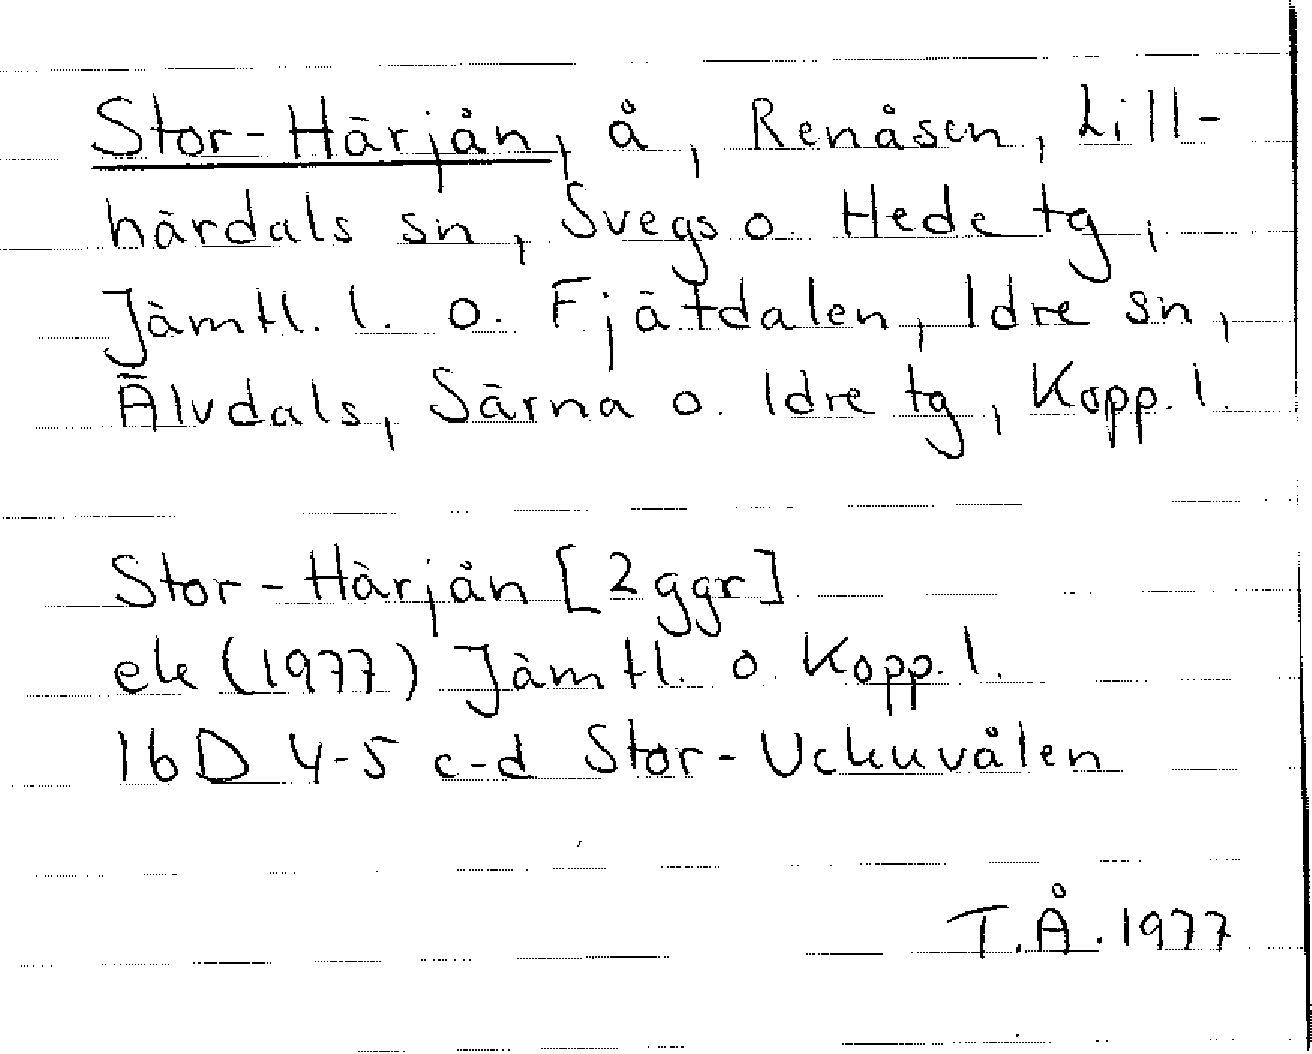 Stor-Härjån, å, Renåsen, Lill-
härdals sn, Svegs o. Hede tg,
Jämtl. l. o. Fjätdalen, Idre sn,
Älvdals, Särna o. Idre tg, Kopp. l.
Stor-Härjån [2 ggr]
ek (1977) Jämtl. o. Kopp. l.
16D 4-5 c-d Stor-Uckuvålen
T.Å. 1977